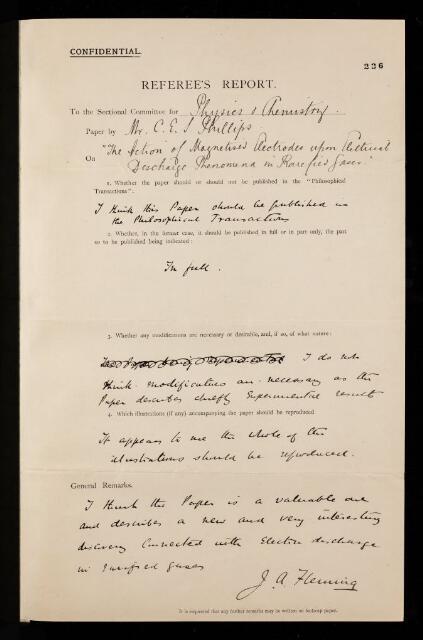 CONFIDENTIAL.
226
REFEREE'S REPORT.
To the Sectional Committee for Physics & Chemistry.
Paper by Mr. C. E. S Phillips
On "The Action of Magnetised Electrodes upon Electrical
Discharge Phenomena in Rarefied Gases."
1. Whether the paper should or should not be published in the "Philosophical
Transactions":
I think this Paper should be published in
the Philosophical Transactions
2. Whether, in the former case, it should be published in full or in part only, the part
so to be published being indicated:
In full.
3. Whether any modifications are necessary or desirable, and, if so, of what nature:
I do not
think modifications are necessary as the
Paper describes chiefly Experimental results
4. Which illustrations (if any) accompanying the paper should be reproduced
It appears to me the whole of the
illustrations should be reproduced.
General Remarks.
I think the Paper is a valuable one
and describes a new and very interesting
discovery Connected with Electric discharge
in rarefied gases
J. A. Fleming
It is requested that any further remarks may be written on foolscap paper.